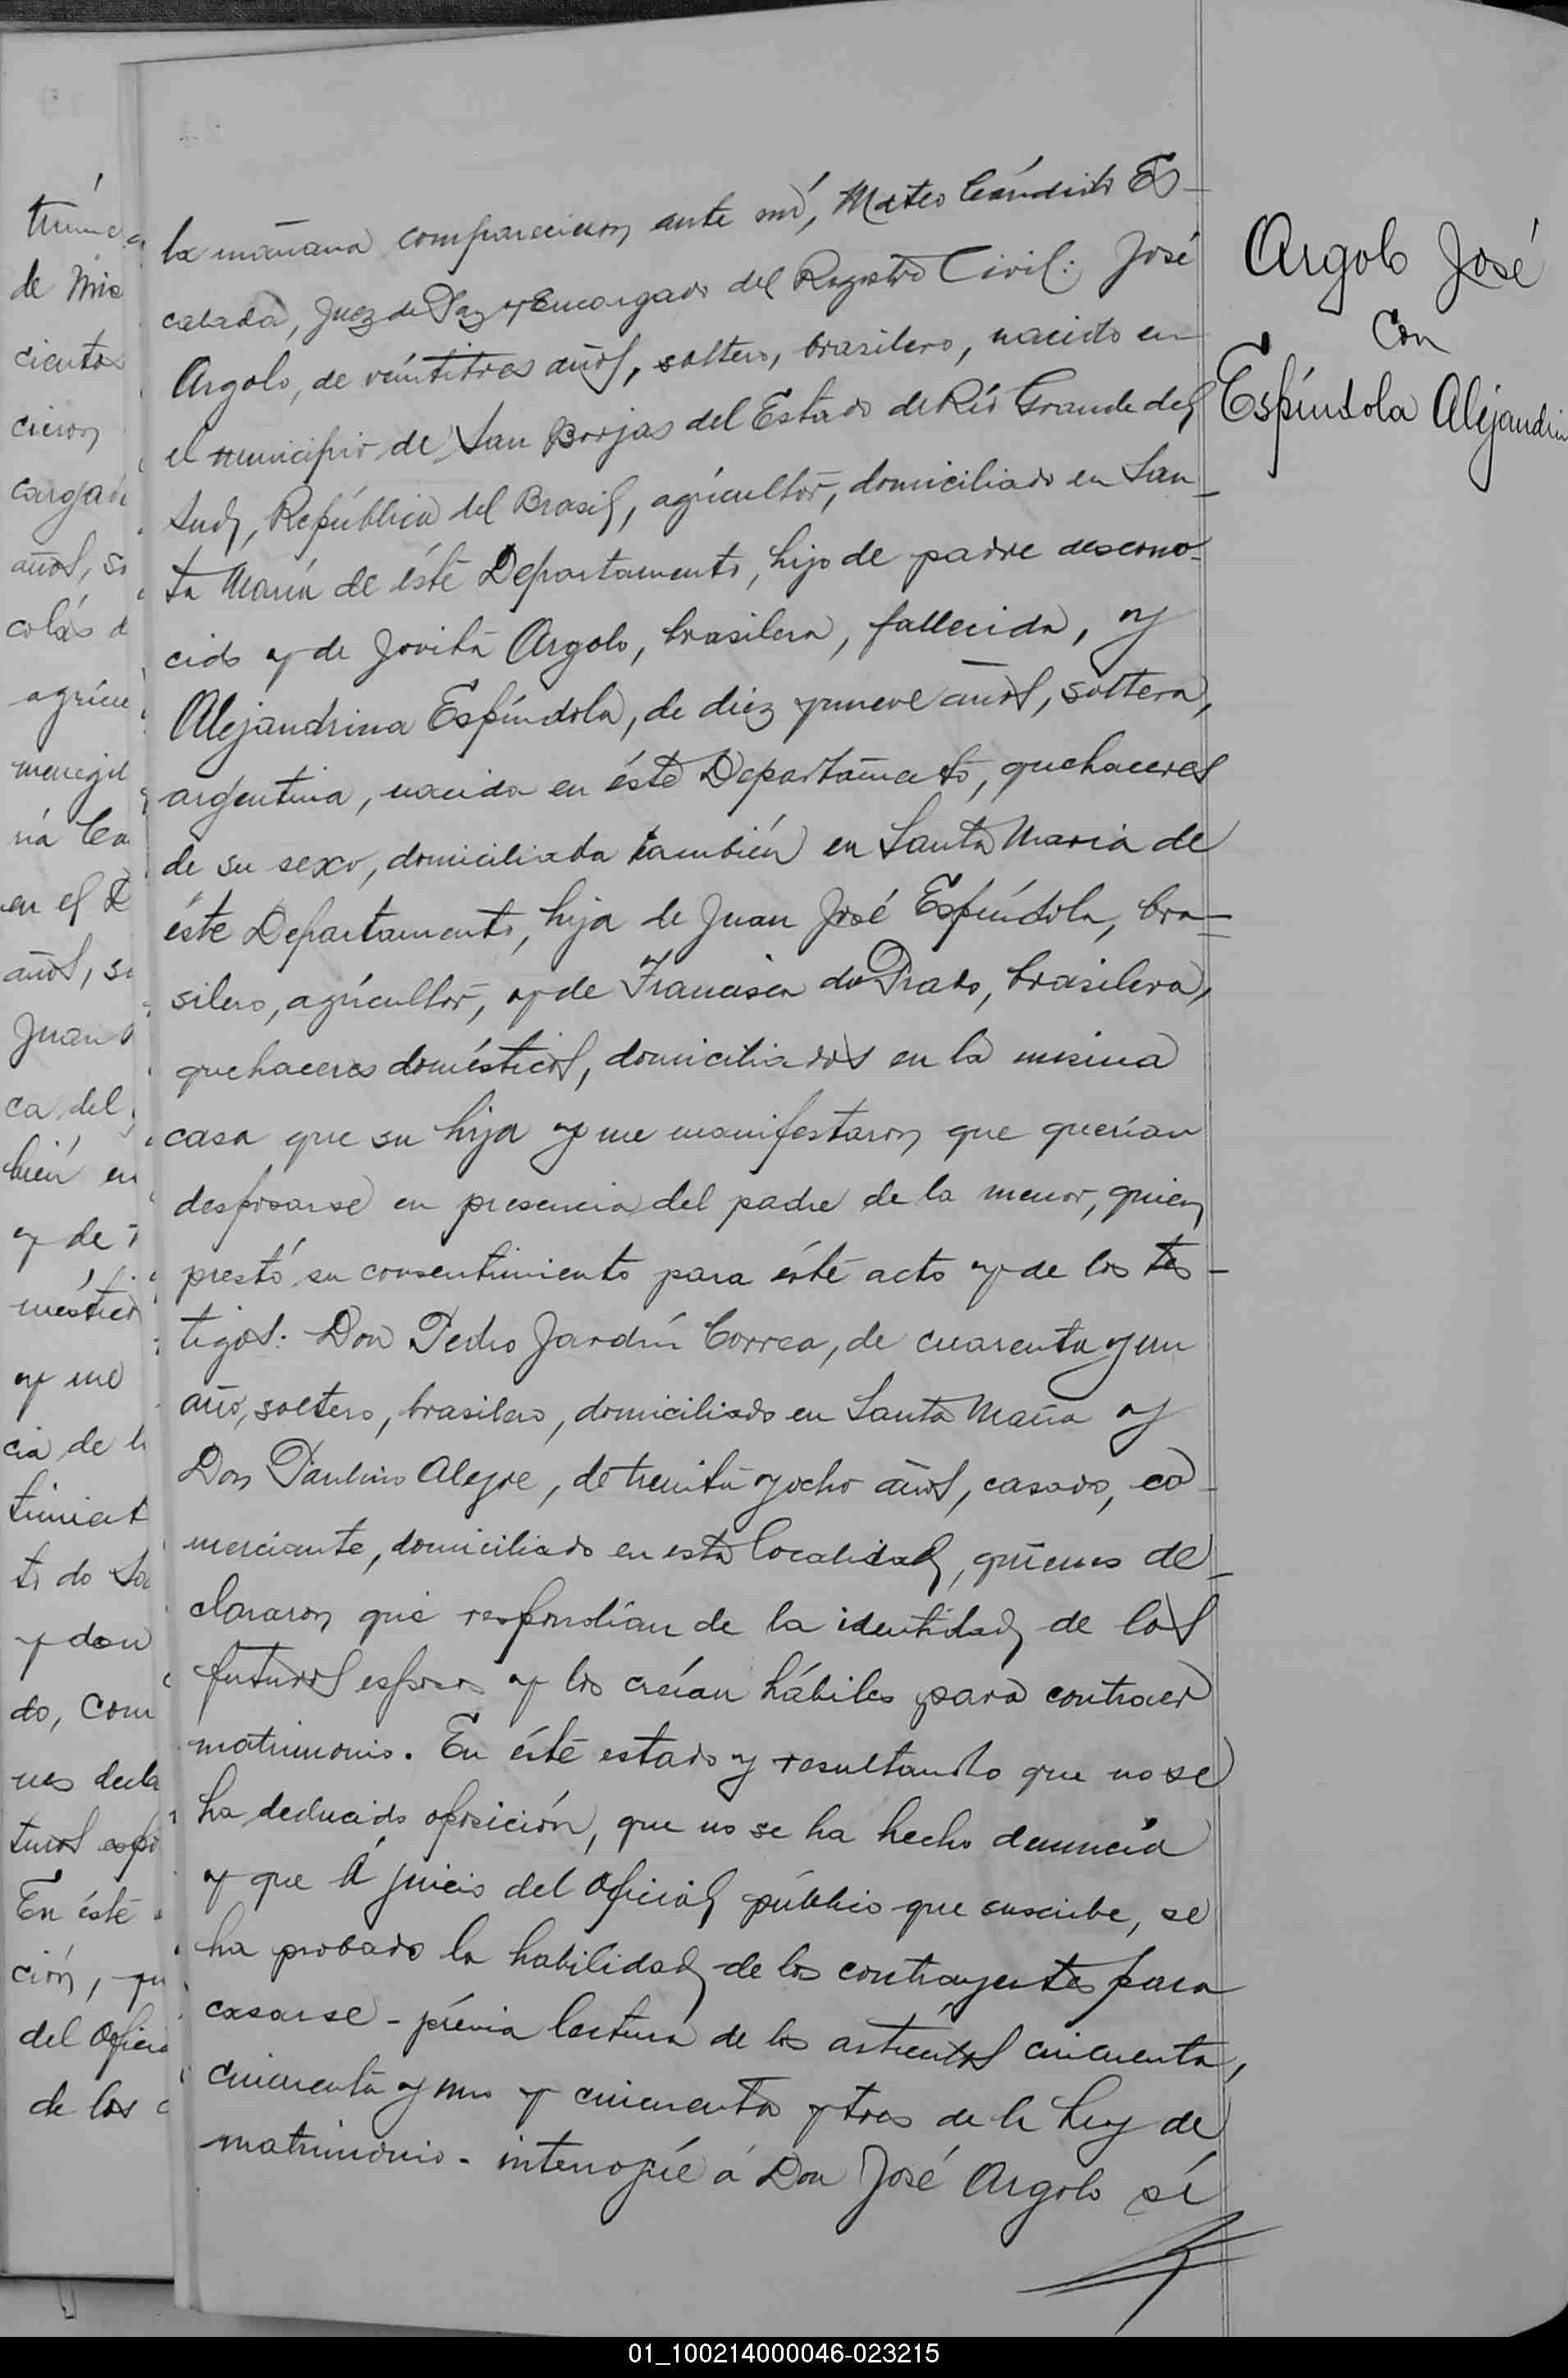 la mañana comparecieron ante mí, Mateo Cándido Es-
calada, Juez de Paz y Encargado del Registro Civil: José
Argolo, de veintitres años, soltero, brasilero, nacido en
el municipio de San Borjas del Estado de Río Grande del
Sud, República del Brasil, agricultor, domiciliado en San-
ta María de éste Departamento, hijo de padre descono-
cido y de Jovita Argolo, brasilera, fallecida, y
Alejandrina Espíndola, de diez y nueve años, soltera,
argentina, nacida en éste Departamento, quehaceres
de su sexo, domiciliada también en Santa Maria de
éste Departamento, hija de Juan José Espíndola, bra-
silero, agricultor, y de Francisca do Prado, brasilera,
quehaceres domésticos, domiciliados en la misma
casa que su hija y me manifestaron que querían
desposarse en presencia del padre de la menor, quien
prestó su consentimiento para éste acto y de los tes-
tigos: Don Pedro Jardín Correa, de cuarenta y un
año, soltero, brasilero, domiciliado en Santa María y
Don Paulino Alegre, de treinta y ocho años, casado, co-
merciante, domiciliado en esta localidad, quienes de-
clararon que respondían de la identidad de los
futuros esposos y los creían hábiles para contraer
matrimonio. En éste estado y resultando que no se
ha deducido oposición, que no se ha hecho denuncia
y que á juicio del oficial público que suscribe, se
ha probado la habilidad de los contrayentes para
casarse - prévia lectura de los artículos cincuenta,
cincuenta y uno y cincuenta y tres de la Ley de
matrimonio - interrogué á Don José Argolo sí
Argolo José
Con
Espíndola Alejandrin
de Mis
cientos
cieron
cargado
años, so
colás d
agricu
meregil
ria Ca
en el D
años, so
Juan
ca del
bién en
y de
y me
cia de l
timient
y don
do, com
nes decla
turos espo
En éste
ción, qu
del Oficia
de los c
01_100214000046-023215